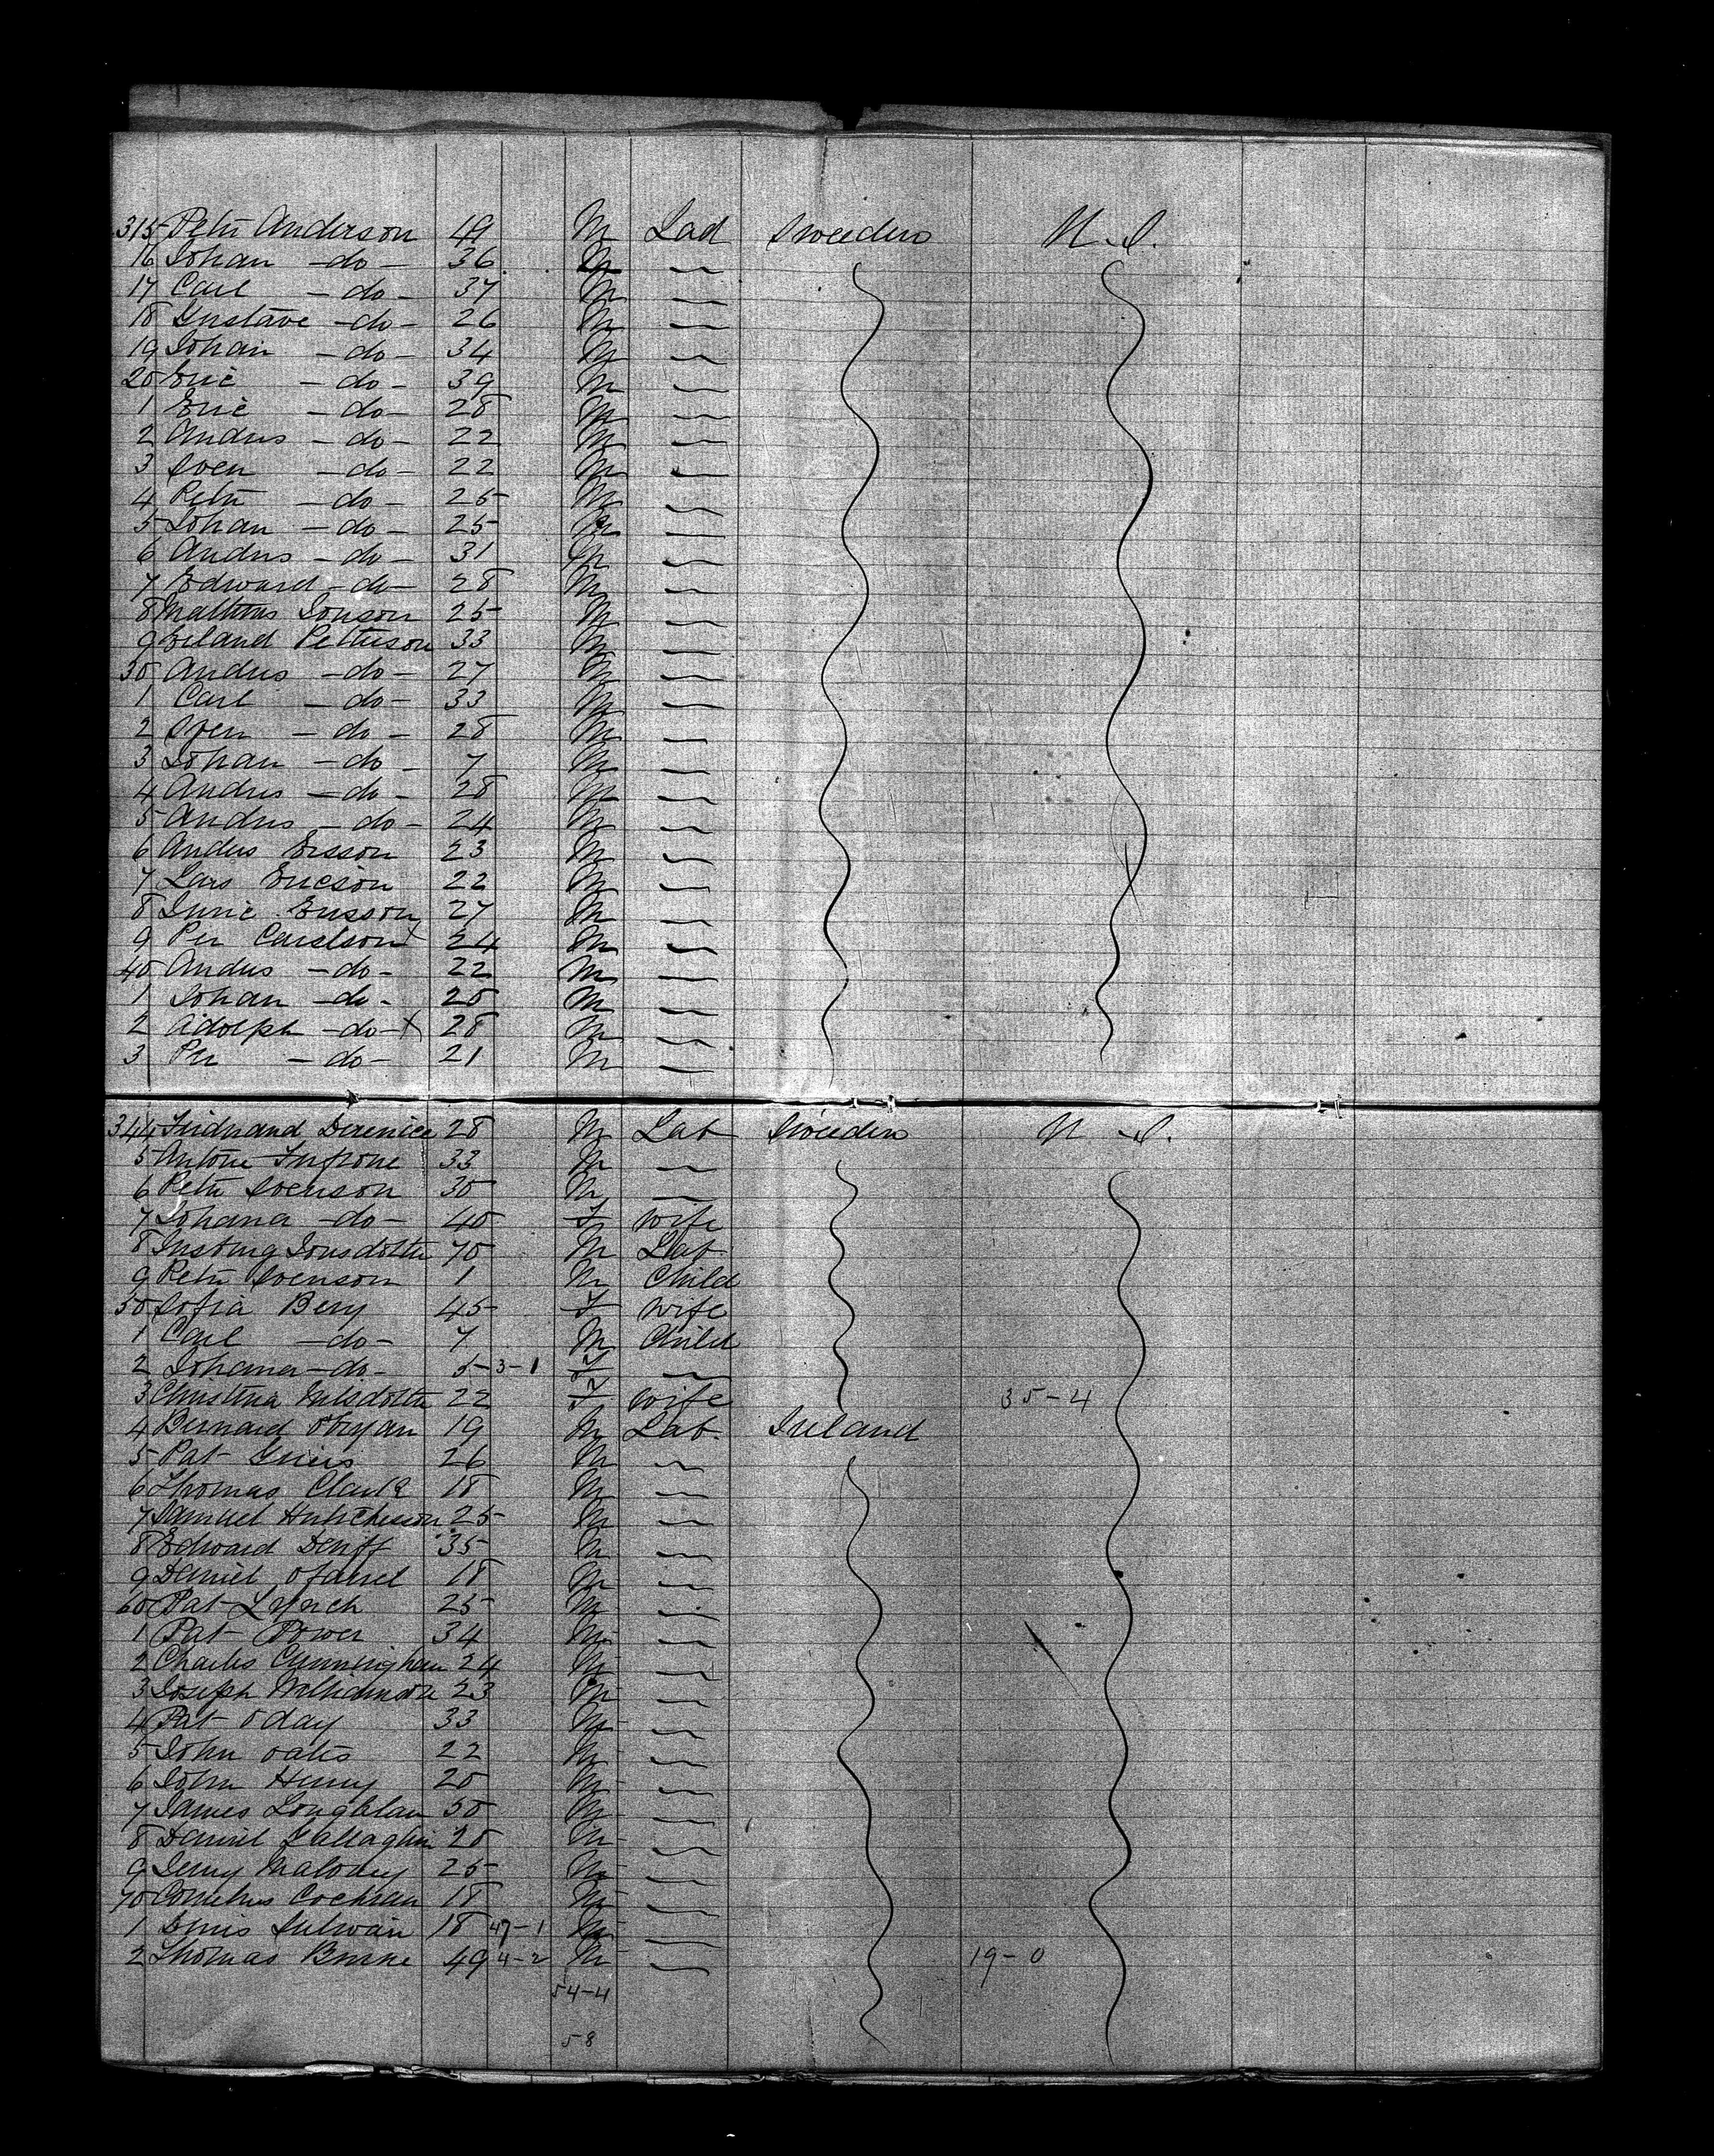 315 Petr Anderson 49 M Lad Sweeden U.S.
16 Johan -do- 36 M
17 Carl -do- 37 M
18 Gustave -do- 26 M
19 Johan -do- 34 M
20 Eric -do- 39 M
1 Eric -do- 28 M
2 Andrs -do- 22 M
3 Sven -do- 22 M
4 Petr -do- 25 M
5 Johan -do- 25 M
6 Andrs -do- 31 M
7 Edward -do- 28 M
8 Jonson 25 M
9 Erland Petterson 33 M
30 Andrs -do- 27 M
1 Carl -do- 33 M
2 Sven -do- 28 M
3 Johan -do- 7 M
4 Andrs -do- 28 M
5 Andrs -do- 24 M
6 Andrs Ersson 23 M
7 Lars Ericson 22 M
8 Ersson 27 M
9 Per Carelson x 24 M
40 Andrs -do- 22 M
1 Johan -do- 20 M
2 Adolph -do- x 28 M
3 Per -do- 21 M
344 Ferdnand 28 M Lab Sweeden U.S.
5 Antone 33 M
6 Petr Svenson 30 M
7 Johana -do- 40 F wife
8 Jonsdotter 70 M Lab
9 Petr Svenson 1 M Child
50 Sofia Berg 45 F wife
1 Carl -do- 7 M Child
2 Johana -do- 5 3-1 F
3 Christina Nilsdotter 22 F wife 35-4
4 Bernard Obryan 19 M Lab. Ireland
5 Pat 26 M
6 Thomas Clark 18 M
7 Samuel Hutcheson 25 M
8 Edward Deriff 35 M
9 Daniel Ofarrel 18 M
60 Pat Lynch 25 M
1 Pat Power 34 M
2 Charles Cunningham 24 M
3 Joseph 23 M
4 Pat Oday 33 M
5 John Oates 22 M
6 John Henry 20 M
7 James Loughlan 50 M
8 Daniel Gallagher 20 M
9 Jerry Maloney 25 M
70 Cornelius Cochran 18 M
1 Denis Sulivan 18 47-1 M
2 Thomas Burke 49 4-2 M 19-0
54-4
58